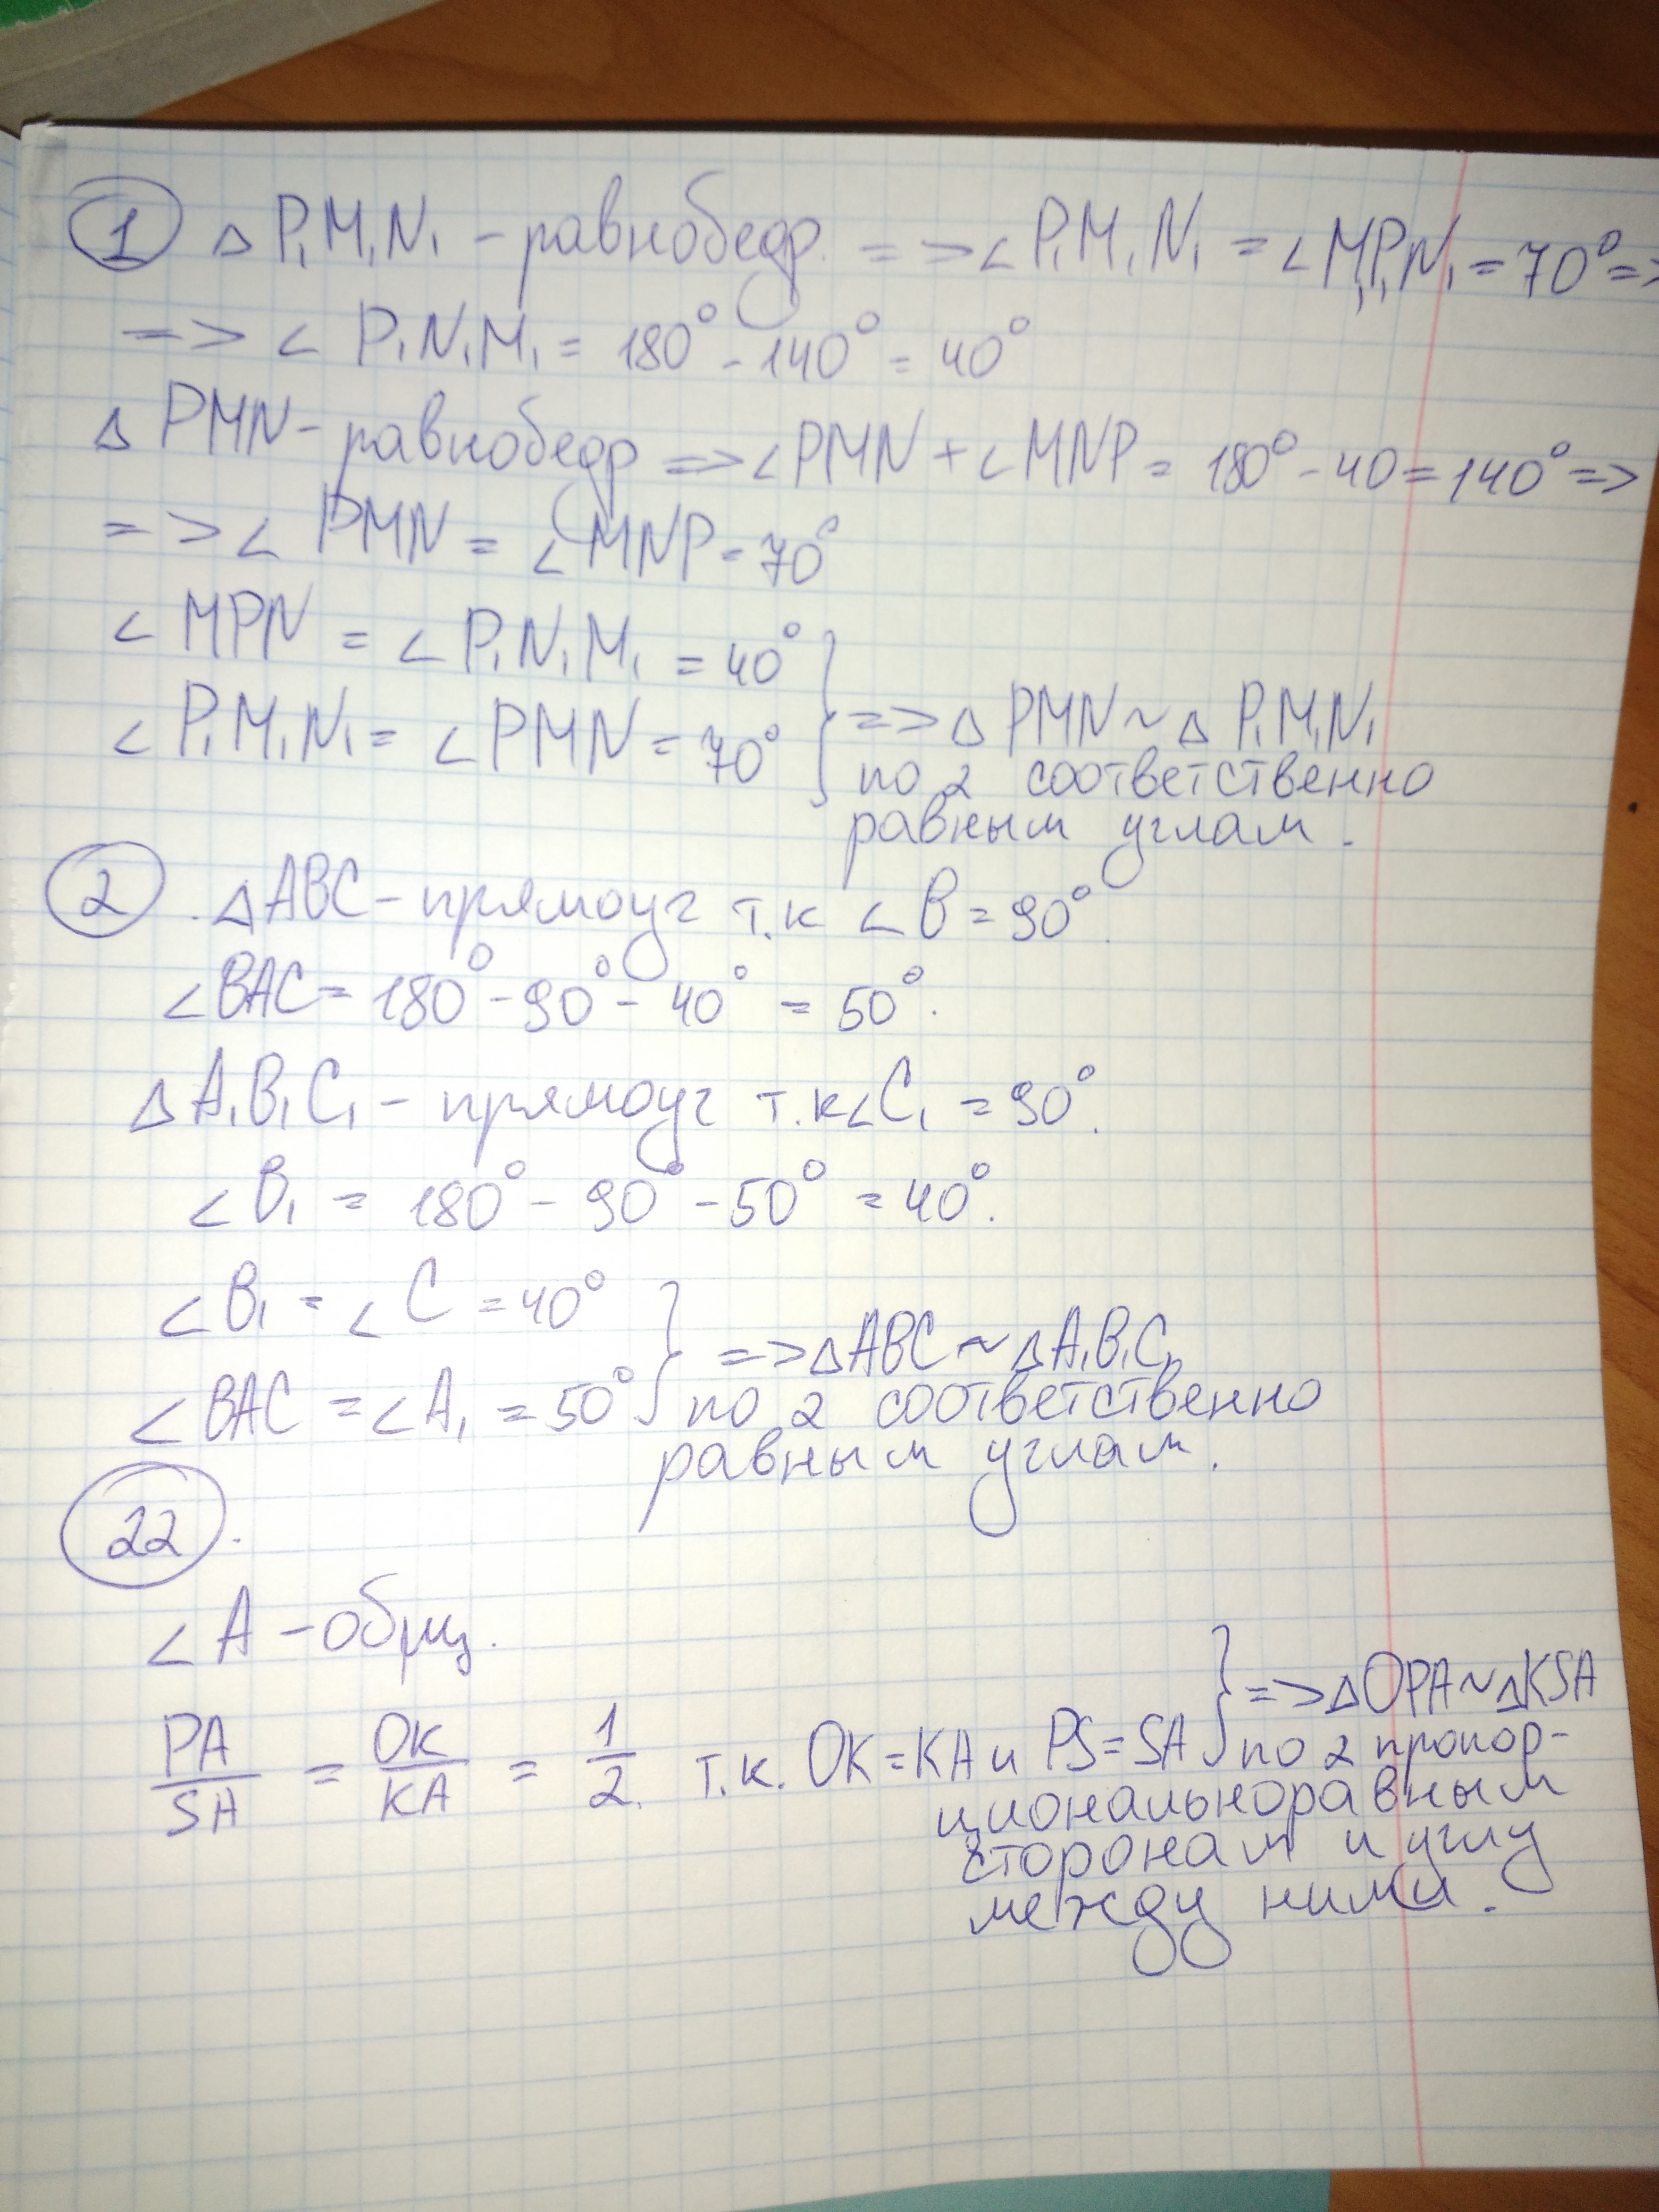 1 △ P₁M₁N₁ - равнобедр. => ∠ P₁M₁N₁ = ∠ M₁P₁N₁ = 70° =>
=> ∠ P₁N₁M₁ = 180° - 140° = 40°
△ PMN - равнобедр => ∠ PMN + ∠ MNP = 180° - 40 = 140° =>
=> ∠ PMN = ∠ MNP = 70°
∠ MPN = ∠ P₁N₁M₁ = 40°
∠ P₁M₁N₁ = ∠ PMN = 70° } => △ PMN ~ △ P₁M₁N₁
по 2 соответственно
равным углам.
2 . △ABC - прямоуг т.к ∠ B = 90°.
∠BAC = 180° - 90° - 40° = 50°.
△ A₁B₁C₁ - прямоуг т.к ∠C₁ = 90°.
∠ B₁ = 180° - 90° - 50° = 40°.
∠ B₁ = ∠ C = 40°
∠ BAC = ∠ A₁ = 50° } => △ABC ~ △A₁B₁C₁
по 2 соответственно
равным углам.
22.
∠ A - общ.
PA/SA = OK/KA = 1/2. т.к. OK = KA и PS = SA } => △OPA ~ △KSA
по 2 пропор-
циональноравным
сторонам и углу
между ними.